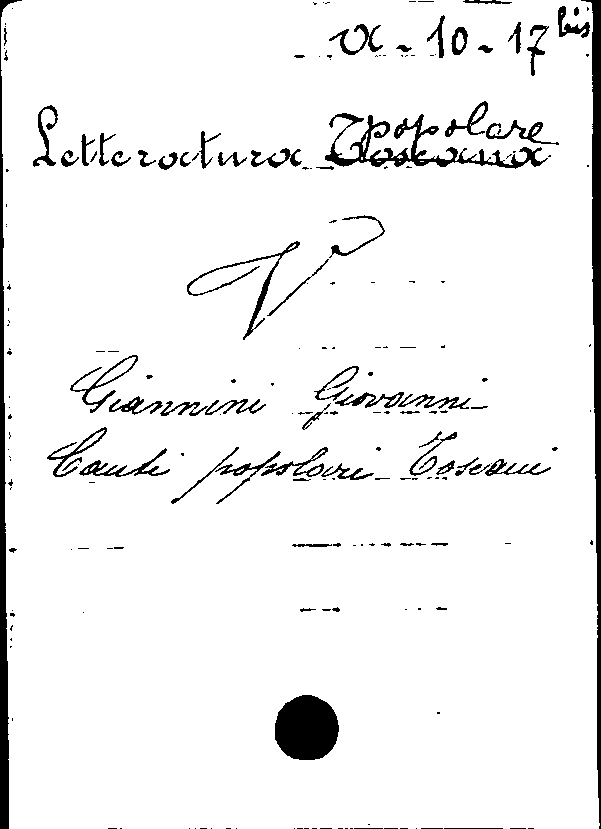 IX - 10 - 17 bis
Letteratura popolare Toscana
V
Giannini Giovanni
Canti popolari Toscani